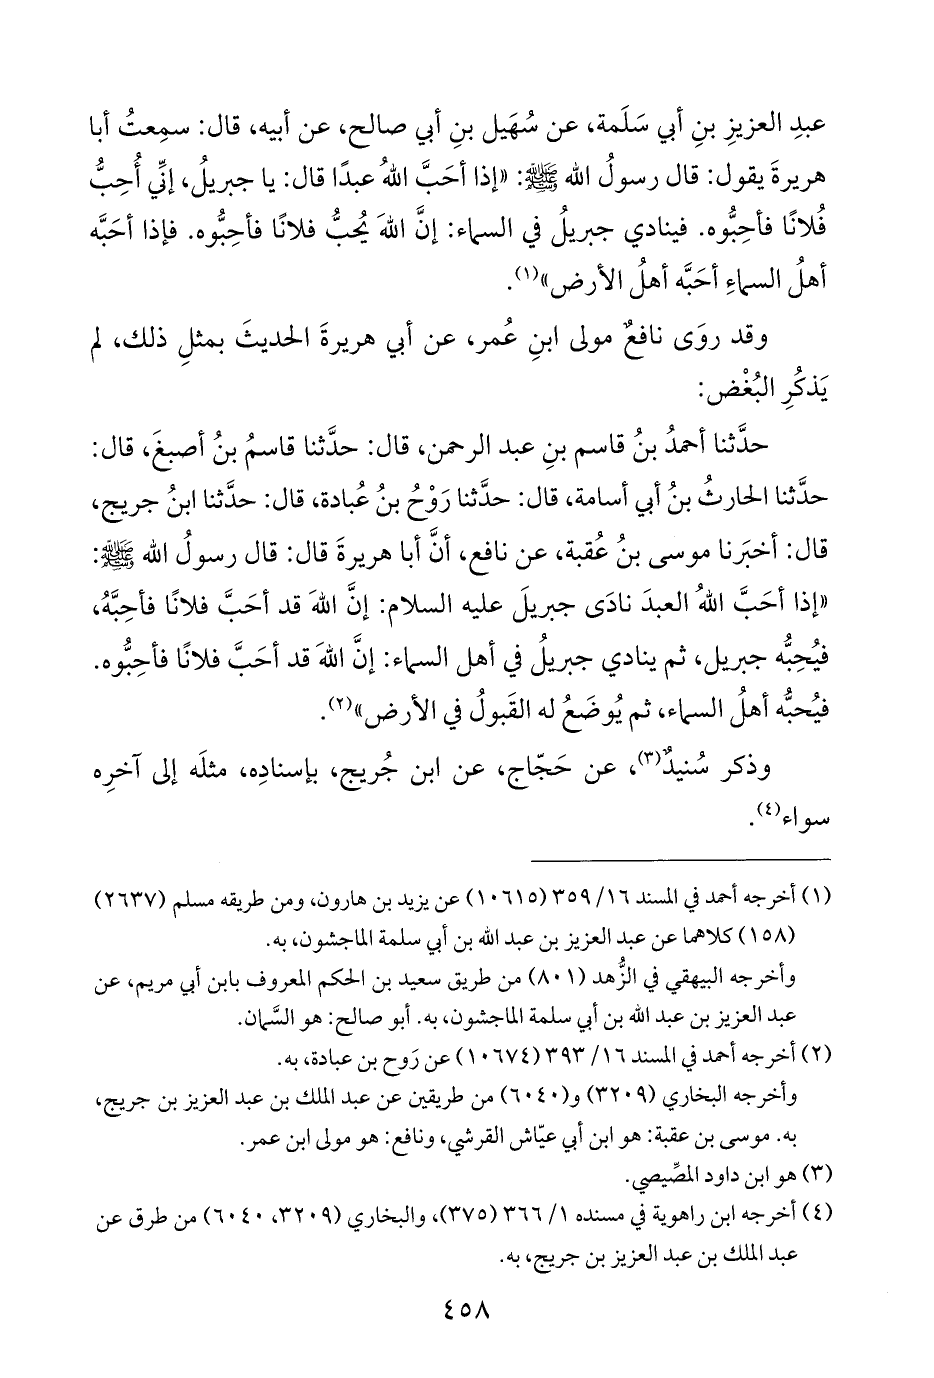 عبدِ العزيزِ بنِ أبي سَلَمة، عن سُهَيل بنِ أبي صالح، عن أبيه، قال: سمِعتُ أبا
هريرةَ يقول: قال رسولُ الله ﷺ: «إذا أحَبَّ اللهُ عبدًا قال: يا جبريلُ، إنِّي أُحِبُّ
فُلانًا فأحِبُّوه. فينادي جبريلُ في السماء: إنَّ اللهَ يُحبُّ فلانًا فأحِبُّوه. فإذا أحَبَّه
أهلُ السماءِ أحَبَّه أهلُ الأرض»(١).
وقد روَى نافعٌ مولى ابنِ عُمر، عن أبي هريرةَ الحديثَ بمثلِ ذلك، لم
يَذكُرِ البُغْض:
حدَّثنا أحمدُ بنُ قاسم بنِ عبد الرحمن، قال: حدَّثنا قاسمُ بنُ أصبغَ، قال:
حدَّثنا الحارثُ بنُ أبي أسامة، قال: حدَّثنا رَوْحُ بنُ عُبادة، قال: حدَّثنا ابنُ جريج،
قال: أخبَرنا موسى بنُ عُقبة، عن نافع، أنَّ أبا هريرةَ قال: قال رسولُ الله ﷺ:
«إذا أحَبَّ اللهُ العبدَ نادَى جبريلَ عليه السلام: إنَّ اللهَ قد أحَبَّ فلانًا فأحِبَّهُ،
فيُحِبُّه جبريل، ثم ينادي جبريلُ في أهل السماء: إنَّ اللهَ قد أحَبَّ فلانًا فأحِبُّوه.
فيُحبُّه أهلُ السماء، ثم يُوضَعُ له القَبولُ في الأرض»(٢).
وذكر سُنيدٌ(٣)، عن حَجّاج، عن ابن جُريج، بإسنادِه، مثلَه إلى آخرِه
سواء(٤).
(١) أخرجه أحمد في المسند ١٦/ ٣٥٩ (١٠٦١٥) عن يزيد بن هارون، ومن طريقه مسلم (٢٦٣٧)
(١٥٨) كلاهما عن عبد العزيز بن عبد الله بن أبي سلمة الماجشون، به.
وأخرجه البيهقي في الزُّهد (٨٠١) من طريق سعيد بن الحكم المعروف بابن أبي مريم، عن
عبد العزيز بن عبد الله بن أبي سلمة الماجشون، به. أبو صالح: هو السَّمان.
(٢) أخرجه أحمد في المسند ١٦/ ٣٩٣ (١٠٦٧٤) عن رَوح بن عبادة، به.
وأخرجه البخاري (٣٢٠٩) و(٦٠٤٠) من طريقين عن عبد الملك بن عبد العزيز بن جريج،
به. موسى بن عقبة: هو ابن أبي عيّاش القرشي، ونافع: هو مولى ابن عمر.
(٣) هو ابن داود المصِّيصي.
(٤) أخرجه ابن راهوية في مسنده ١/ ٣٦٦ (٣٧٥)، والبخاري (٣٢٠٩، ٦٠٤٠) من طرق عن
عبد الملك بن عبد العزيز بن جريج، به.
٤٥٨